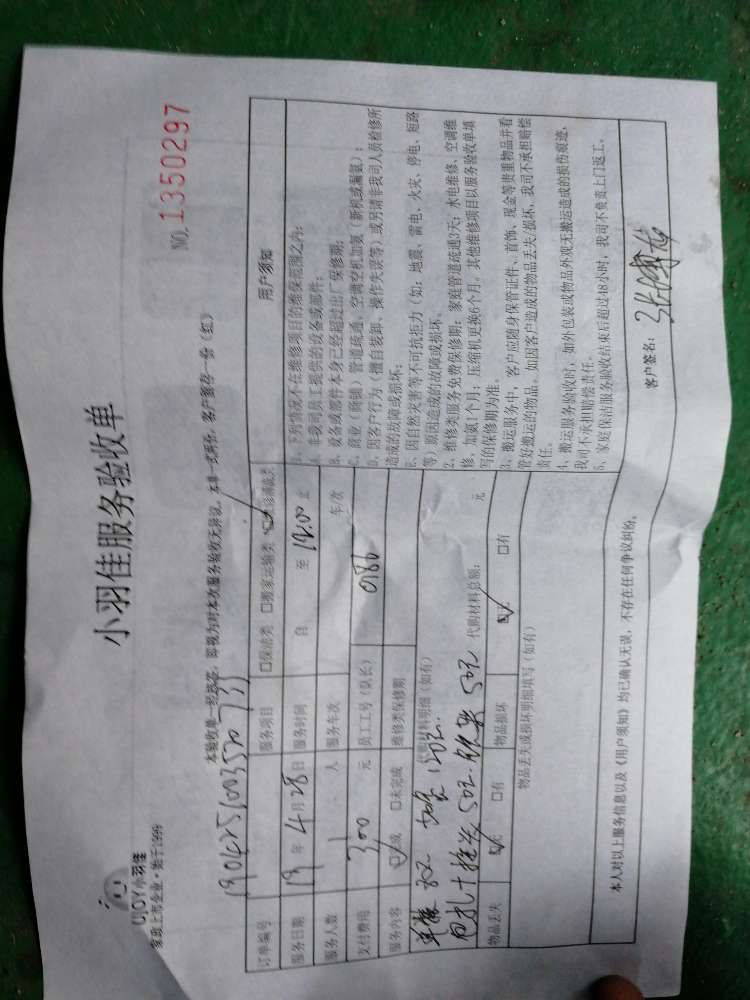 UJOY小羽佳
家政上市企业·始于1999
小羽佳服务验收单
NO. 1350297
本验收单一经核签，即视为对本次服务验收无异议。本单一式两份，客户留存一份（红）
订单编号
服务项目 □保洁类 □搬家运输类
服务日期 19年4月28日 服务时间 自 至 12:00 止
服务人数 1 人 服务车次 车/次
支付费用 300 元 员工工号（队长） 0186
服务内容 ☑完成 □未完成 维修类保修期
代购材料明细（如有）
50元 50元 代购材料总额： 元
物品丢失 ☑无 □有 物品损坏 ☑无 □有
物品丢失或损坏明细填写（如有）
用户须知
1、下列情况不在维修项目的维保范围之内：
A、非我司员工提供的设备或部件；
B、设备或部件本身已经超过出厂保修期；
C、商业（商铺）管道疏通，空调空机加氨（新机或漏氨）；
D、因客户行为（擅自装卸、操作失误等）或另请非我司人员检修所
造成的故障或损坏；
E、因自然灾害等不可抗拒力（如：地震、雷电、火灾、停电、短路
等）原因造成的故障或损坏。
2、维修类服务免费保修期：家庭管道疏通3天；水电维修、空调维
修、加氨1个月；压缩机更换6个月。其他维修项目以服务验收单填
写的保修期为准。
3、搬运服务中，客户应随身保管证件、首饰、现金等贵重物品并看
管好搬运的物品。如因客户造成的物品丢失/损坏，我司不承担赔偿
责任。
4、搬运服务验收时，如外包装或物品外观无搬运造成的损伤痕迹，
我司不承担赔偿责任。
5、家庭保洁服务验收结束后超过48小时，我司不负责上门返工。
本人对以上服务信息以及《用户须知》均已确认无误，不存在任何争议纠纷。
客户签名：